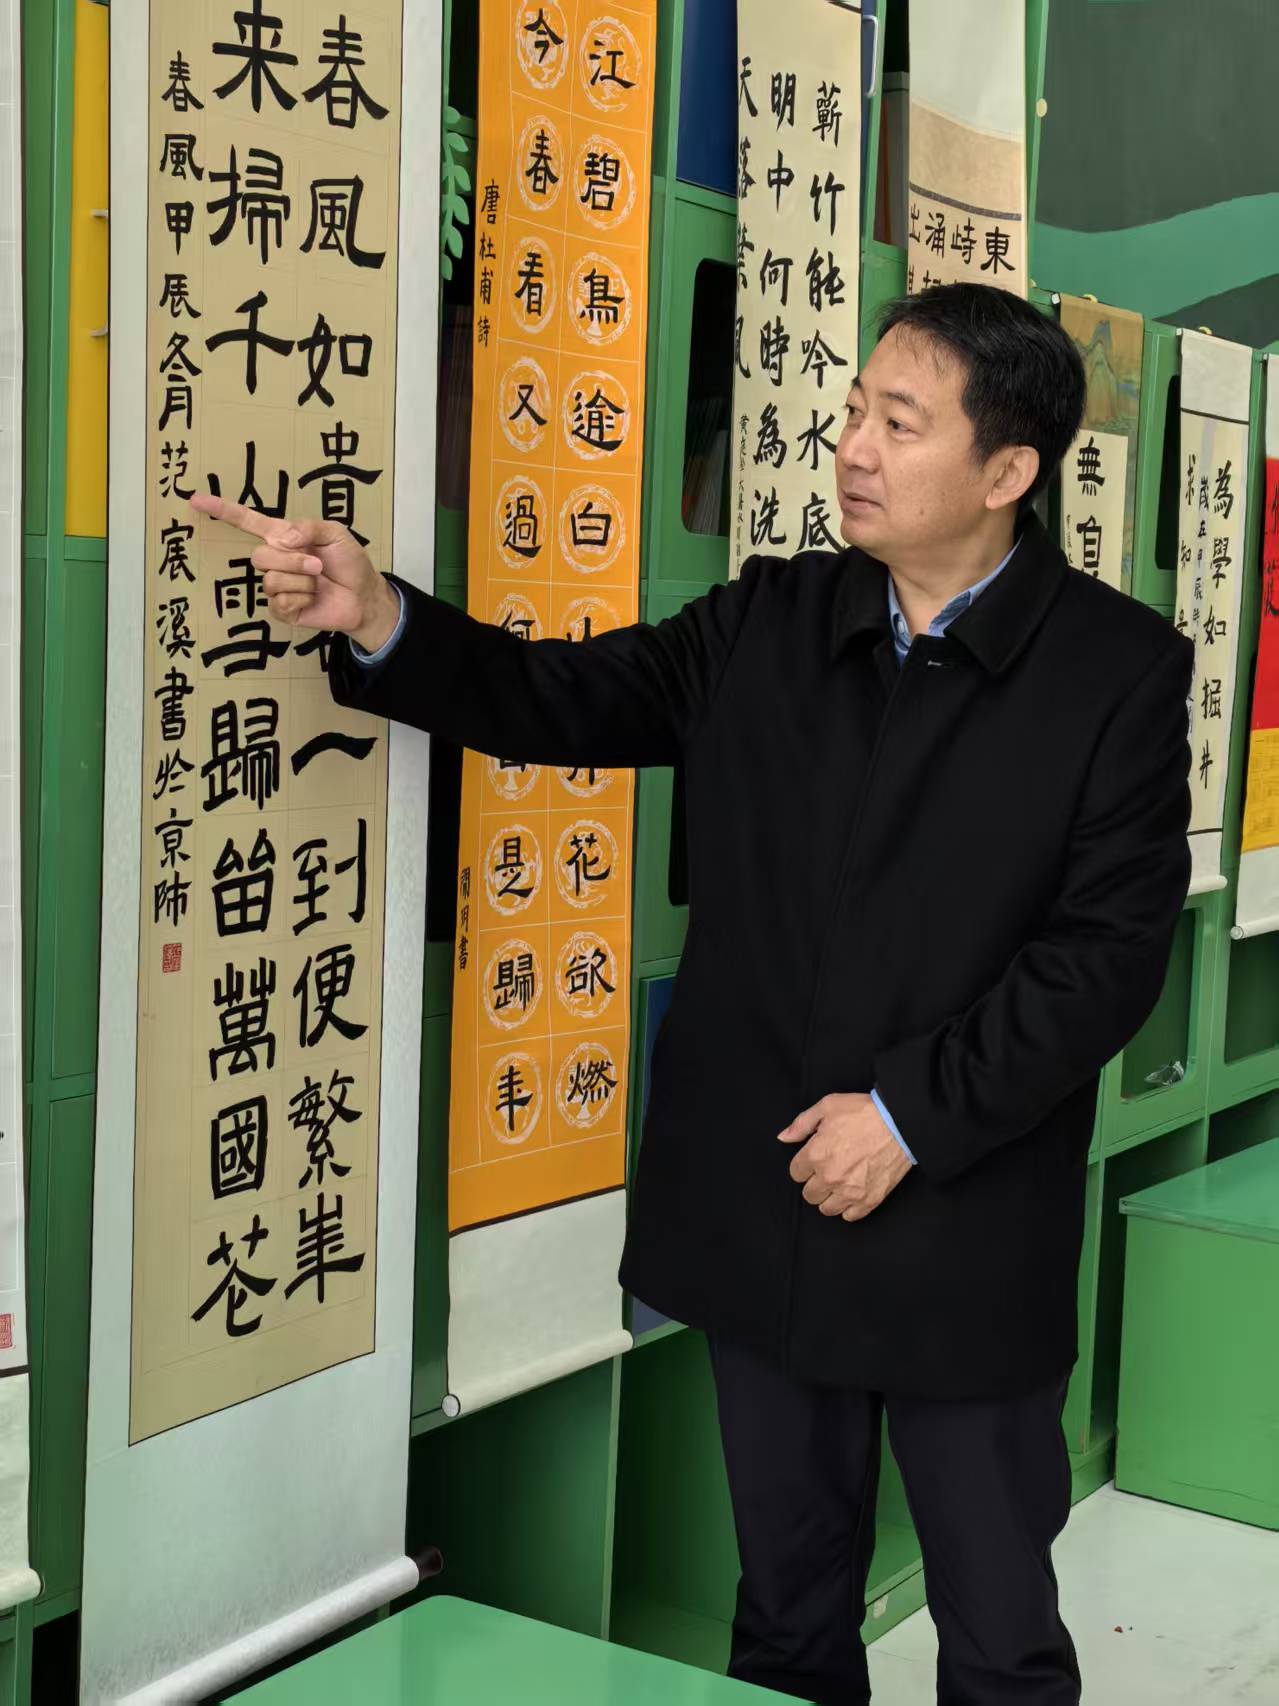 春風如貴一到便繁華
来掃千山雪歸留萬國花
春風甲辰冬月范宸溪書於京師
江碧鳥逾白山花欲燃
今春看又過何日是歸年
唐杜甫詩
書
蘄竹能吟水底
明中何時為洗
天落葉風
黃庭堅
東
峙
涌
出
無息
為學如掘井
歲在甲辰
求知